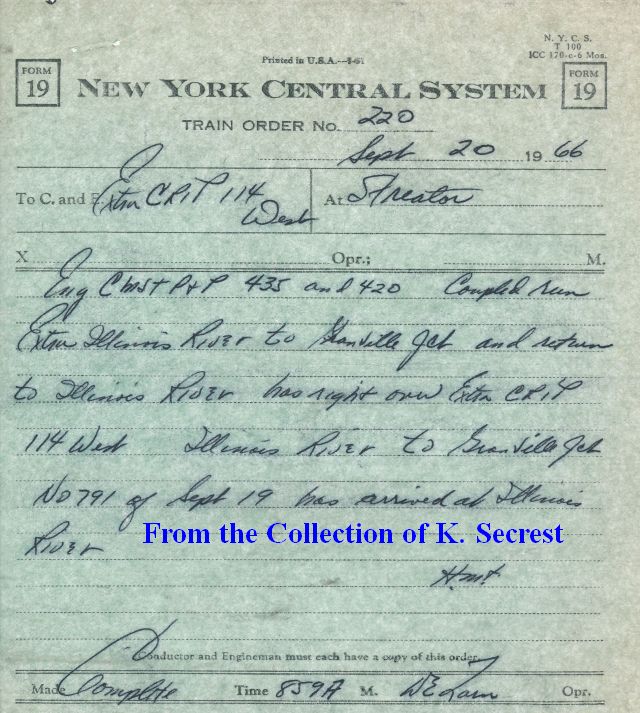 N. Y. C. S.
T 100
ICC 170-c-6 Mos.
Printed in U.S.A.
FORM 19
NEW YORK CENTRAL SYSTEM
FORM 19
TRAIN ORDER No. 220
Sept 20 1966
To C. and E. Extra CRIP 114 West At Streator
X Opr.; M.
Eng CMStP&P 435 and 420 Coupled run
Extra Illinois River to Granville Jct and return
to Illinois River has right over Extra CRIP
114 West Illinois River to Granville Jct
No 791 of Sept 19 has arrived at Illinois
River
From the Collection of K. Secrest
Conductor and Engineman must each have a copy of this order.
Made Complete Time 859A M. Opr.